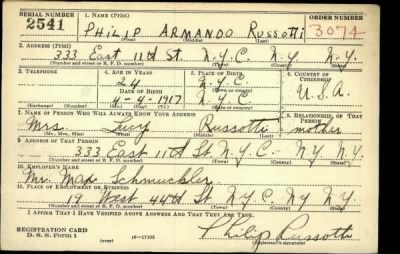 SERIAL NUMBER 1. NAME (Print) ORDER NUMBER
2541 PHILIP ARMANDO RUSSOTTI 3074
(First) (Middle) (Last)
2. ADDRESS (Print)
333 East 11th St. N.Y.C. N.Y. N.Y.
(Number and street or R. F. D. number) (Town) (County) (State)
3. TELEPHONE 4. AGE IN YEARS 5. PLACE OF BIRTH 6. COUNTRY OF CITIZENSHIP
24 N.Y.C.
DATE OF BIRTH
4-4-1917 N.Y.C. U.S.A.
(Exchange) (Number) (Mo.) (Day) (Yr.) (State or country)
7. NAME OF PERSON WHO WILL ALWAYS KNOW YOUR ADDRESS 8. RELATIONSHIP OF THAT PERSON
Mrs. Lucy Russotti mother
(Mr., Mrs., Miss) (First) (Middle) (Last)
9. ADDRESS OF THAT PERSON
333 East 11th St. N.Y.C. NY N.Y.
(Number and street or R. F. D. number) (Town) (County) (State)
10. EMPLOYER'S NAME
Mr. Max Schmuckler
11. PLACE OF EMPLOYMENT OR BUSINESS
19 West 44th St. N.Y.C. NY NY
(Number and street or R. F. D. number) (Town) (County) (State)
I AFFIRM THAT I HAVE VERIFIED ABOVE ANSWERS AND THAT THEY ARE TRUE.
REGISTRATION CARD
D. S. S. Form 1 (over) 16-17105 Philip Russotti
(Registrant's signature)